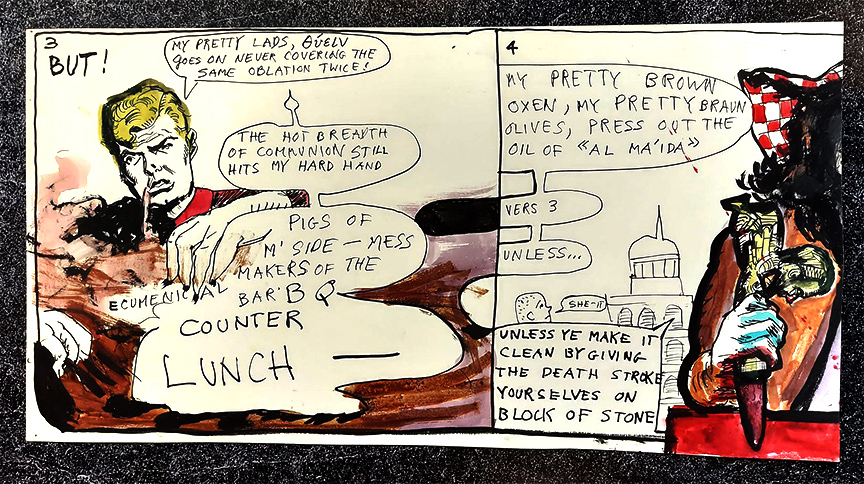 3
BUT!
MY PRETTY LADS, QÚELV
GOES ON NEVER COVERING THE
SAME OBLATION TWICE!
THE HOT BREADTH
OF COMMUNION STILL
HITS MY HARD HAND
PIGS OF
M' SIDE — MESS
MAKERS OF THE
BAR'B Q
ECUMENICAL
COUNTER
LUNCH —
4
MY PRETTY BROWN
OXEN, MY PRETTY BRAUN
OLIVES, PRESS OUT THE
OIL OF «AL MA'IDA»
VERS 3
UNLESS...
SHE-IT
UNLESS YE MAKE IT
CLEAN BY GIVING
THE DEATH STROKE
YOURSELVES ON
BLOCK OF STONE